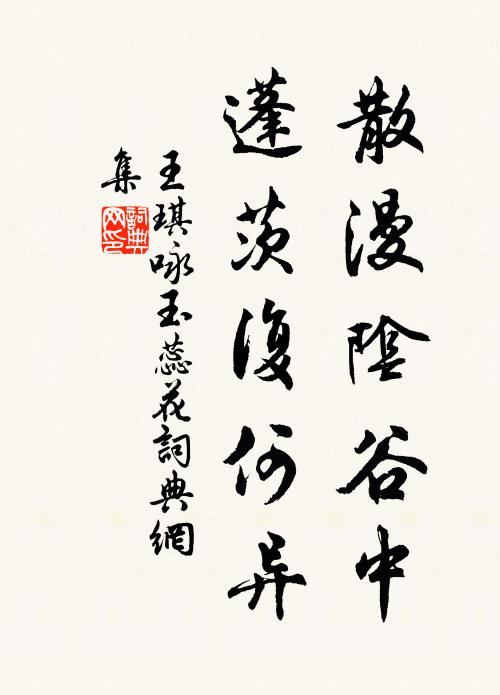 散漫陰谷中
蓬茨復何异
王琪咏玉蕊花詞典網
集
詞典
网印